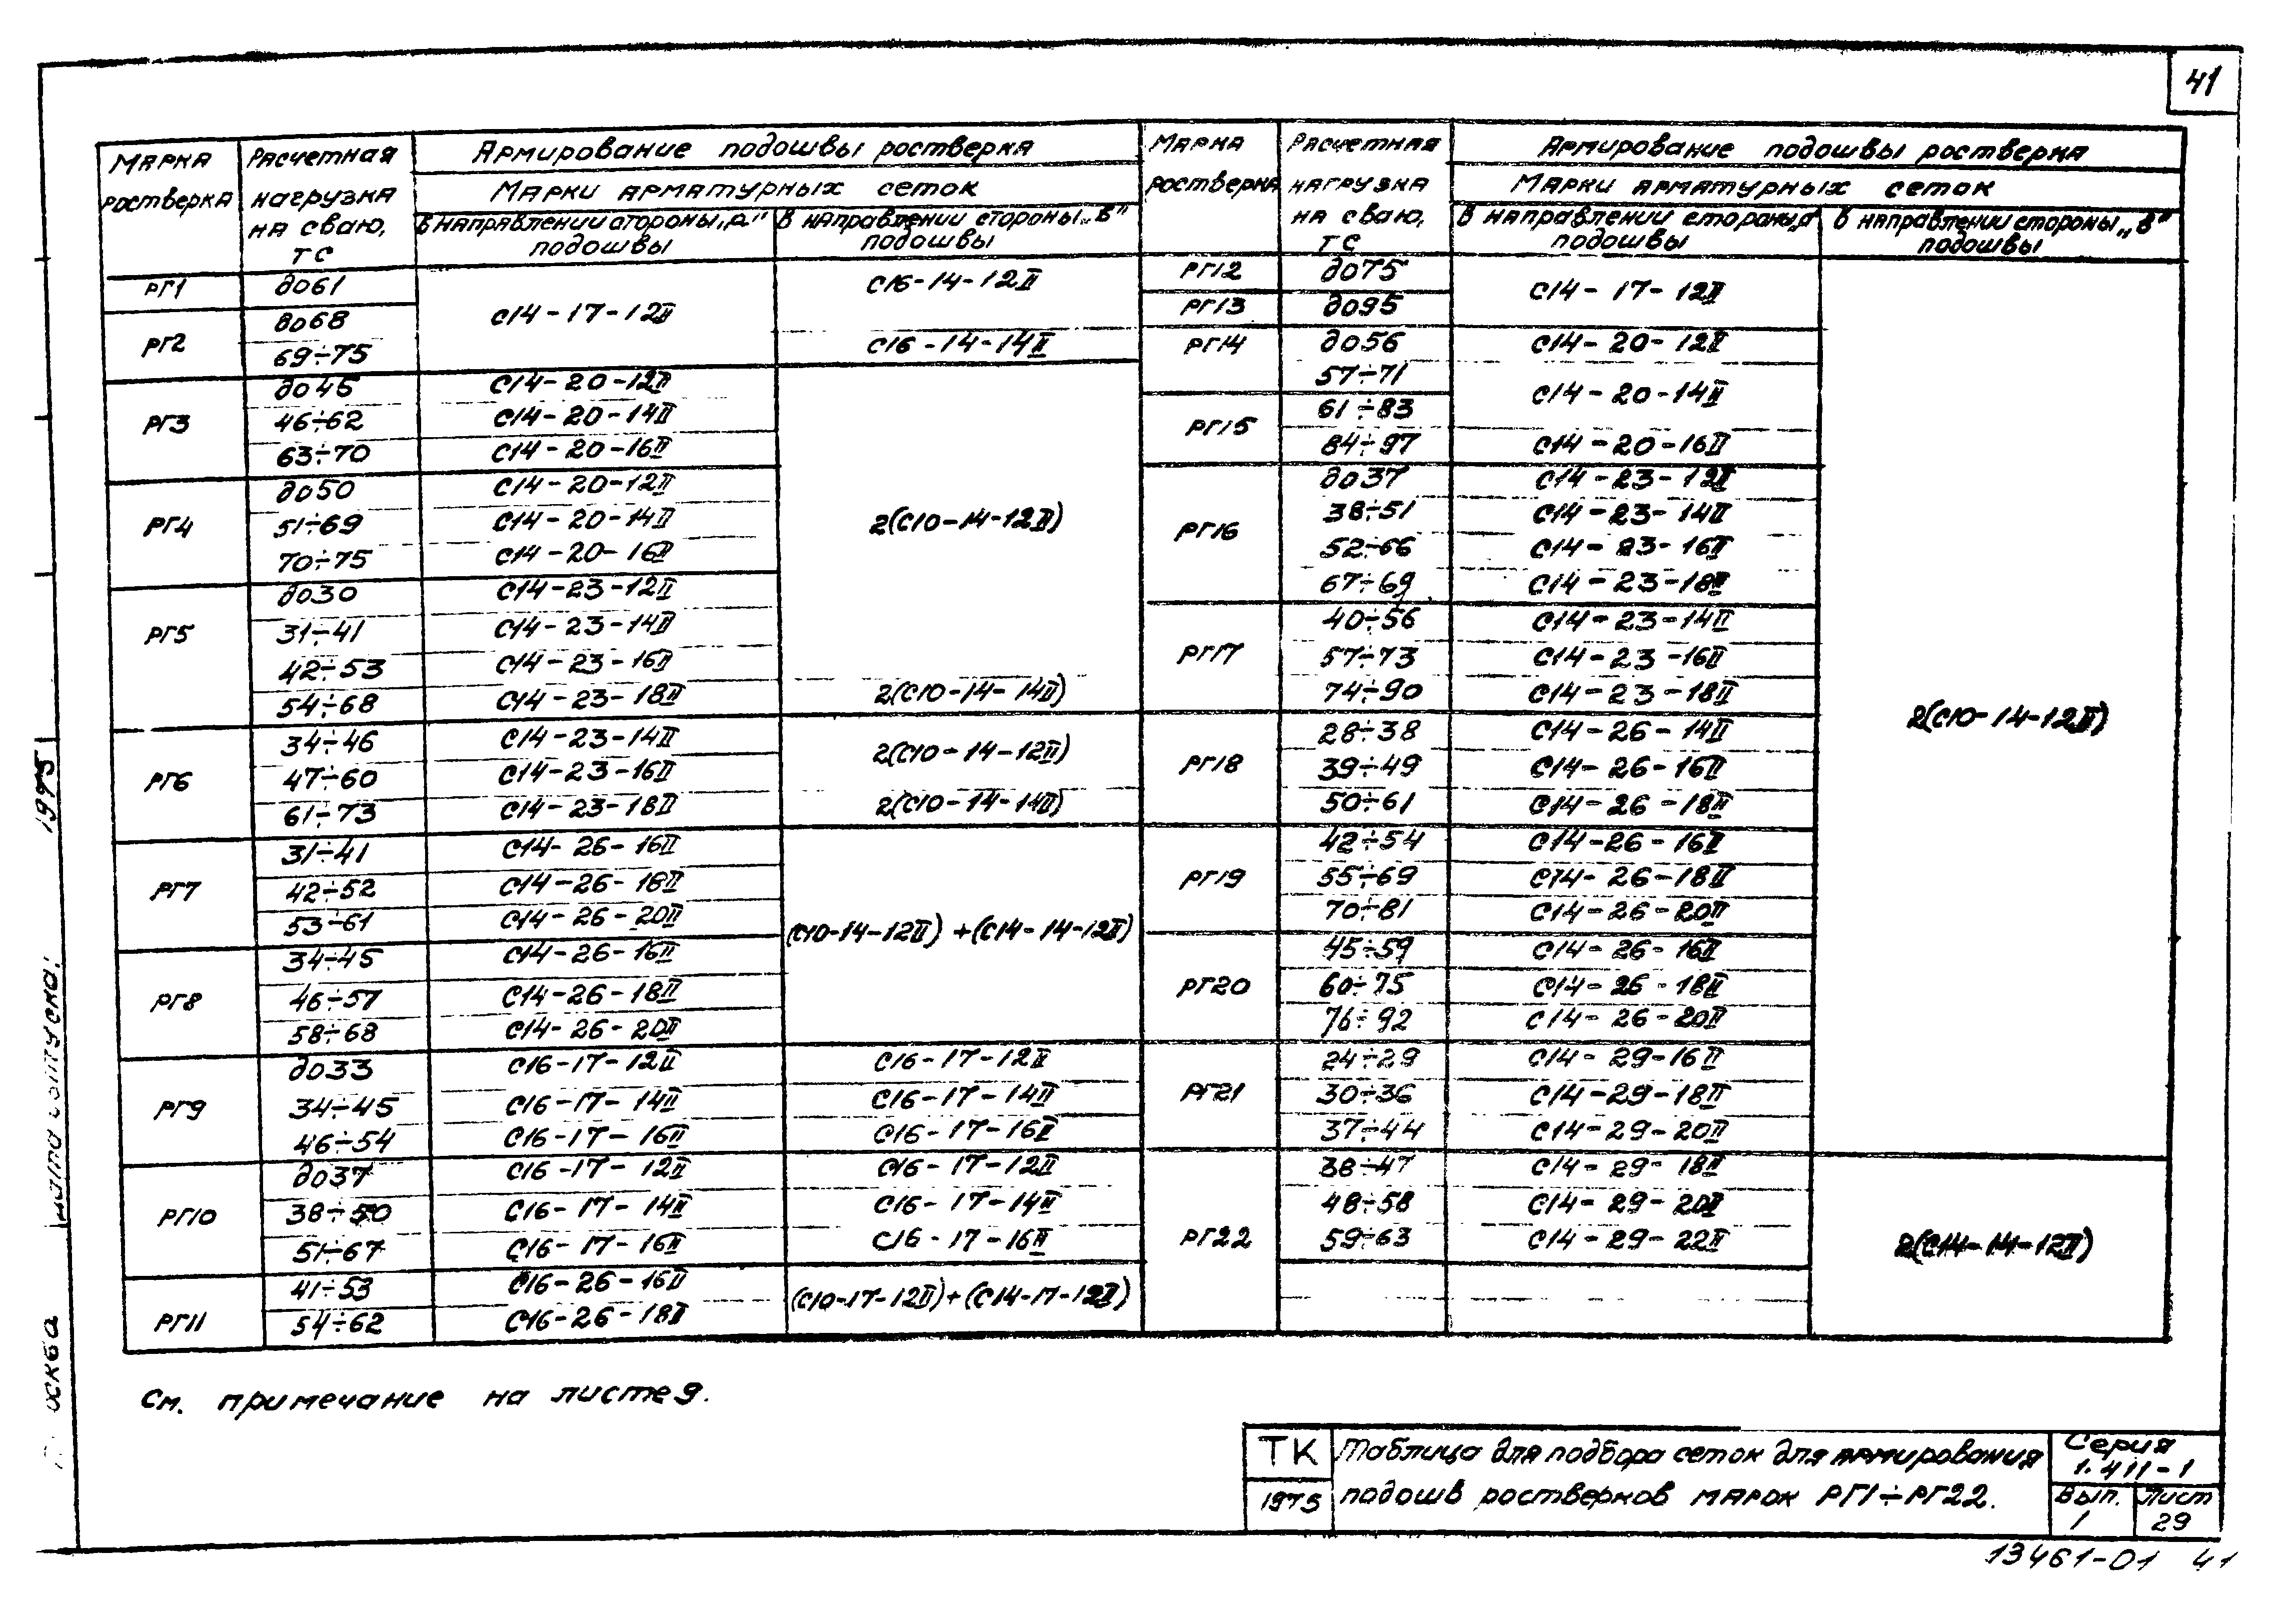 41
Марка ростверка | Расчетная нагрузка на сваю, тс | Армирование подошвы ростверка
Марки арматурных сеток
в направлении стороны „а" подошвы | в направлении стороны „в" подошвы
РГ1 | до 61 | С14-17-12II | С16-14-12II
РГ2 | до 68
69÷75 | С16-14-14II
РГ3 | до 45 | С14-20-12II | 2(С10-14-12II)
46÷62 | С14-20-14II
63÷70 | С14-20-16II
РГ4 | до 50 | С14-20-12II
51÷69 | С14-20-14II
70÷75 | С14-20-16II
РГ5 | до 30 | С14-23-12II
31÷41 | С14-23-14II
42÷53 | С14-23-16II
54÷68 | С14-23-18II | 2(С10-14-14II)
РГ6 | 34÷46 | С14-23-14II | 2(С10-14-12II)
47÷60 | С14-23-16II
61÷73 | С14-23-18II | 2(С10-14-14II)
РГ7 | 31÷41 | С14-26-16II | (С10-14-12II)+(С14-14-12II)
42÷52 | С14-26-18II
53÷61 | С14-26-20II
РГ8 | 34÷45 | С14-26-16II
46÷57 | С14-26-18II
58÷68 | С14-26-20II
РГ9 | до 33 | С16-17-12II | С16-17-12II
34÷45 | С16-17-14II | С16-17-14II
46÷54 | С16-17-16II | С16-17-16II
РГ10 | до 37 | С16-17-12II | С16-17-12II
38÷50 | С16-17-14II | С16-17-14II
51÷67 | С16-17-16II | С16-17-16II
РГ11 | 41÷53 | С16-26-16II | (С10-17-12II)+(С14-17-12II)
54÷62 | С16-26-18II
Марка ростверка | Расчетная нагрузка на сваю, тс | Армирование подошвы ростверка
Марки арматурных сеток
в направлении стороны „а" подошвы | в направлении стороны „в" подошвы
РГ12 | до 75 | С14-17-12II | 2(С10-14-12II)
РГ13 | до 95
РГ14 | до 56 | С14-20-12II
57÷71 | С14-20-14II
РГ15 | 61÷83
84÷97 | С14-20-16II
РГ16 | до 37 | С14-23-12II
38÷51 | С14-23-14II
52÷66 | С14-23-16II
67÷69 | С14-23-18II
РГ17 | 40÷56 | С14-23-14II
57÷73 | С14-23-16II
74÷90 | С14-23-18II
РГ18 | 28÷38 | С14-26-14II
39÷49 | С14-26-16II
50÷61 | С14-26-18II
РГ19 | 42÷54 | С14-26-16II
55÷69 | С14-26-18II
70÷81 | С14-26-20II
РГ20 | 45÷59 | С14-26-16II
60÷75 | С14-26-18II
76÷92 | С14-26-20II
РГ21 | 24÷29 | С14-29-16II
30÷36 | С14-29-18II
37÷44 | С14-29-20II
РГ22 | 38÷47 | С14-29-18II | 2(С14-14-12II)
48÷58 | С14-29-20II
59÷63 | С14-29-22II
См. примечание на листе 9.
ТК
1975
Таблица для подбора сеток для армирования
подошв ростверков марок РГ1÷РГ22.
Серия
1.411-1
Вып. Лист
1 29
13461-01 41
выпуска: 1975